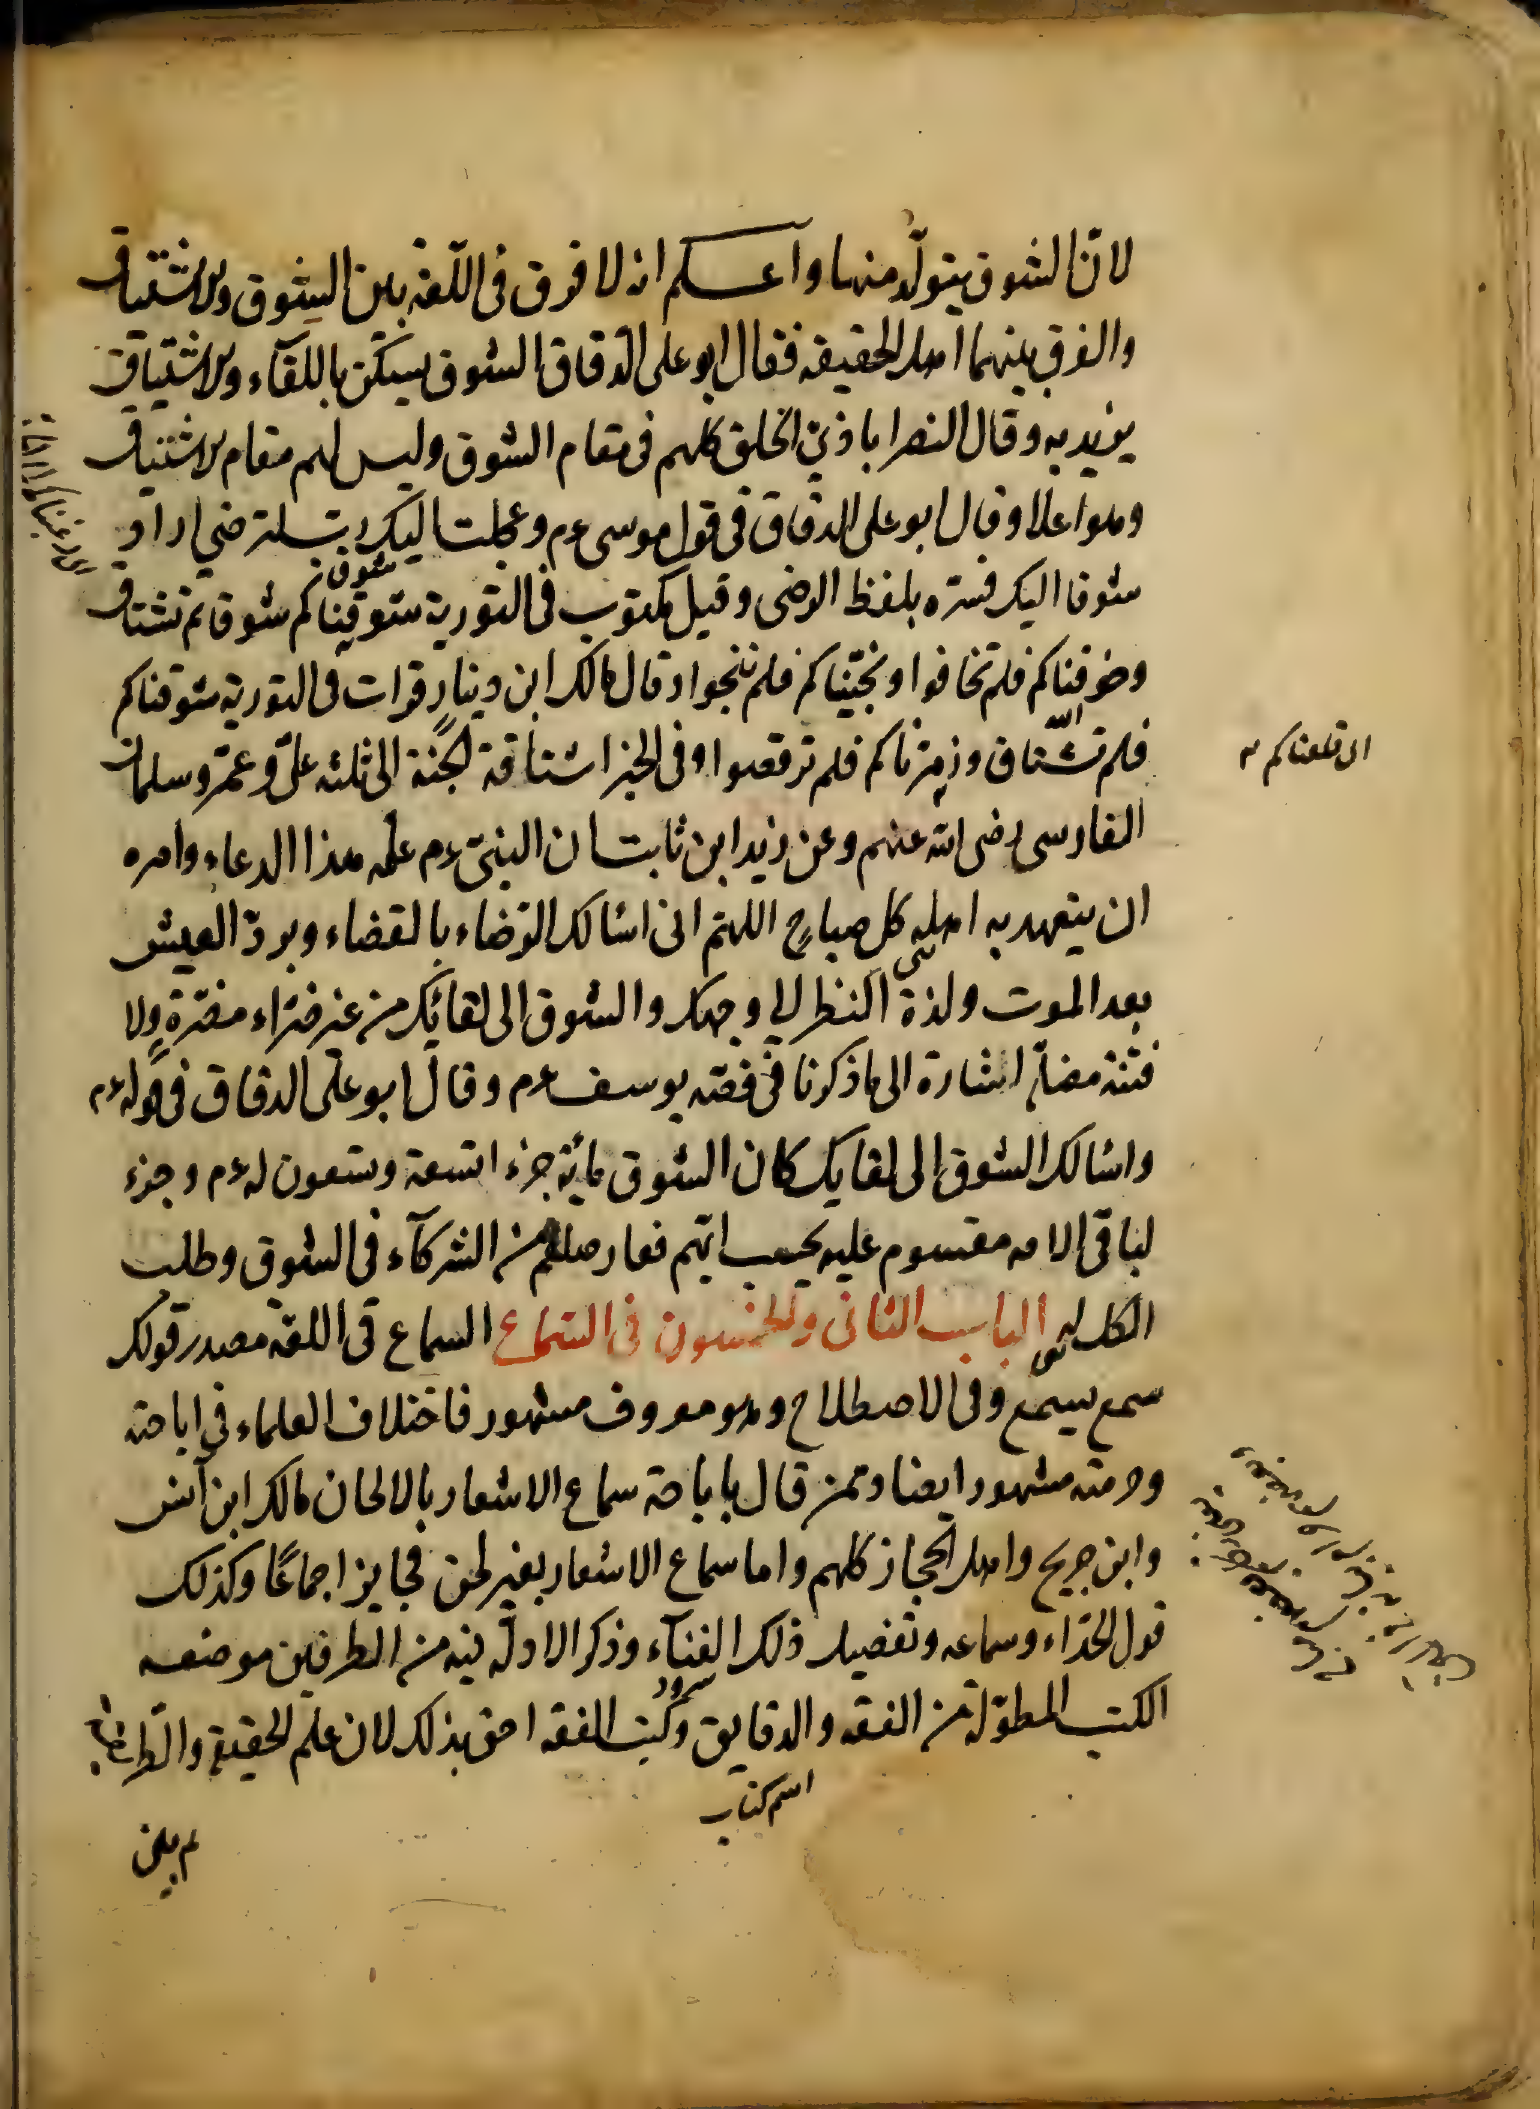 لانّ الشوق يتولّد منها واعلم انه لا فرق فى اللّغة بين الشوق والاشتياق
والفرق بينهما اهل الحقيقه فقال ابو على الدّقاق الشوق يسكّن باللقآء والاشتياق
يزيد به وقال النصراباذىّ الخلق كلهم فى مقام الشوق وليس لهم مقام الاشتياق
وهو اعلا وقال ابو على الدقاق فى قول موسى عم وعجلت اليك ربّ لترضى اراد
شوقا اليك فستره بلفظ الرضى وقيل مكتوب فى التورية شوقناكم شوقا تم نشتاق
شوق
وخوفناكم فلم تخافوا ونجّيناكم فلم تنجوا وقال مالك ابن دينار قرات فى التورية شوقناكم
فلم تشتاق وزمّرناكم فلم ترقصوا وفى الخبر اشتاقة الجنّة الى ثلثه علىّ وعمّر وسلمان
الفارسى رضى الله عنهم وعن زيد ابن ثابت ان النبىّ عم علمه هذا الدعاء وامره
ان يتعهد به اهله كل صباح اللهم انى اسالك الرّضاء بالقضاء وبردّ العيش
بعد الموت ولذة النظر الى وجهك والشوق الى لقائك من غير ضرّاء مضرّة ولا
فتنة مضلّة اشارة الى ما ذكرنا فى قصّه يوسف عم وقال ابو على الدقاق فى قوله عم
واسالك الشوق الى لقايك كان الشوق مائة جزء اتسعة وتسعون له عم وجزء
لباقى الامه مقسوم عليه بحسب اتهم فعار صلعم من الشركآء فى الشوق وطلب
الكل له الباب الثانى والخمسون فى السّماع السماع فى اللغة مصدر قولك
سمع يسمع وفى الاصطلاح وهو معروف مشهور فاختلاف العلماء فى اباحته
وحرمته مشهور ايضا وممن قال باباحة سماع الاشعار بالالحان مالك ابن آنس
وابن جريح واهل الحجاز كلهم واما سماع الاشعار بغير لحن فجايز اجماعًا وكذلك
قول الحدّاء وسماعه وتفصيل ذلك الغنآء وذكر الادلّه فيه من الطرفين موضعه
سرود
الكتب المطوّلة من الفقه والدقايق وكتب الفقه احق بذلك لان علم الحقيقة والطريقة
اسم كتاب
لم يبن